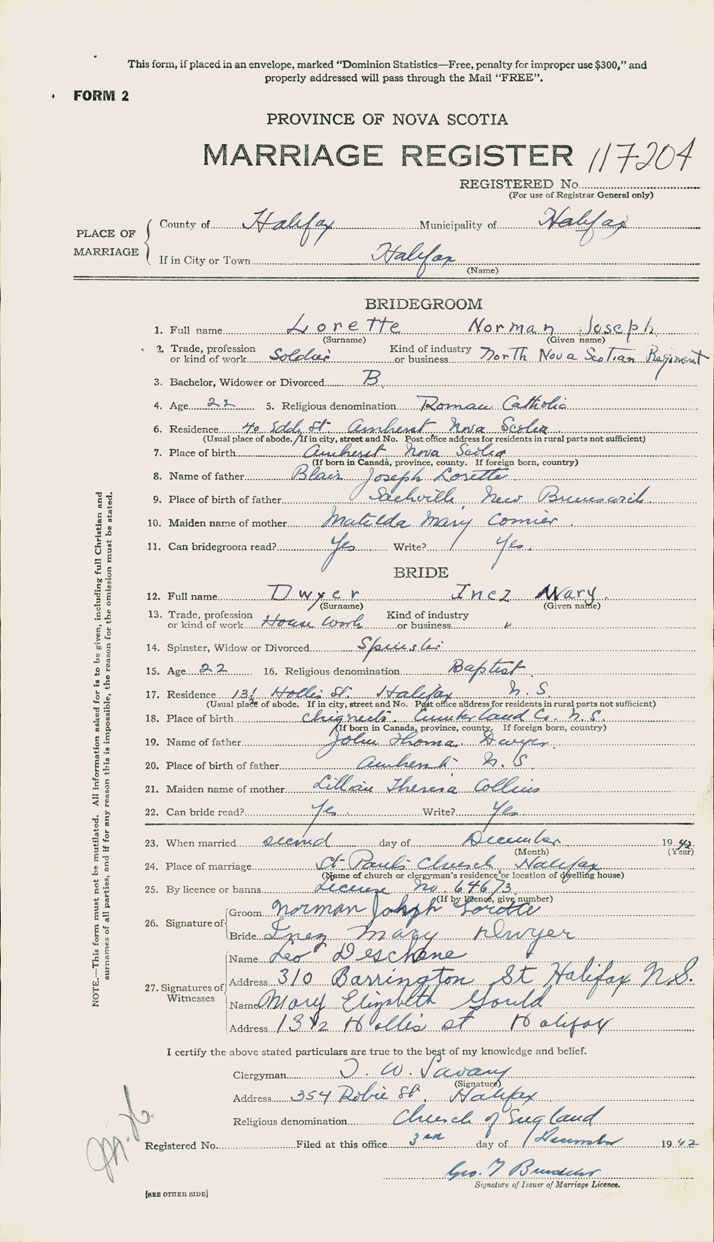 This form, if placed in an envelope, marked "Dominion Statistics—Free, penalty for improper use $300," and
properly addressed will pass through the Mail "FREE".
FORM 2
PROVINCE OF NOVA SCOTIA
MARRIAGE REGISTER 117204
REGISTERED No.
(For use of Registrar General only)
PLACE OF MARRIAGE
County of Halifax Municipality of Halifax
If in City or Town Halifax
(Name)
BRIDEGROOM
1. Full name Lorette Norman Joseph
(Surname) (Given name)
2. Trade, profession or kind of work Soldier Kind of industry or business North Nova Scotian Regiment
3. Bachelor, Widower or Divorced B
4. Age 22 5. Religious denomination Roman Catholic
6. Residence 40 Eddy St. Amherst Nova Scotia
(Usual place of abode. If in city, street and No. Post office address for residents in rural parts not sufficient)
7. Place of birth Amherst Nova Scotia
(If born in Canada, province, county. If foreign born, country)
8. Name of father Blair Joseph Lorette
9. Place of birth of father Sackville New Brunswick
10. Maiden name of mother Matilda Mary Comier
11. Can bridegroom read? Yes Write? Yes.
BRIDE
12. Full name Dwyer Inez Mary.
(Surname) (Given name)
13. Trade, profession or kind of work House Work Kind of industry or business "
14. Spinster, Widow or Divorced Spinster
15. Age 22 16. Religious denomination Baptist
17. Residence Hollis St. Halifax N.S.
(Usual place of abode. If in city, street and No. Post office address for residents in rural parts not sufficient)
18. Place of birth Chignecto Cumberland Co. N.S.
(If born in Canada, province, county. If foreign born, country)
19. Name of father John Thomas Dwyer
20. Place of birth of father Amherst N.S.
21. Maiden name of mother Lillian Theresa Collins
22. Can bride read? Yes Write? Yes
23. When married second day of December 1942
(Month) (Year)
24. Place of marriage St. Paul's Church Halifax
(Name of church or clergyman's residence or location of dwelling house)
25. By licence or banns License No. 64673
(If by licence, give number)
26. Signature of
Groom Norman Joseph Lorette
Bride Inez Mary Dwyer
27. Signatures of Witnesses
Name Leo Deschene
Address 310 Barrington St Halifax N.S.
Name Mary Elizabeth Gould
Address 13½ Hollis st Halifax
I certify the above stated particulars are true to the best of my knowledge and belief.
Clergyman T. W. Savary
(Signature)
Address 354 Robie St. Halifax
Religious denomination Church of England
Registered No. Filed at this office 3rd day of December 1942
Geo. T
Signature of Issuer of Marriage Licence.
[SEE OTHER SIDE]
NOTE.—This form must not be mutilated. All information asked for is to be given, including full Christian and
surnames of all parties, and if for any reason this is impossible, the reason for the omission must be stated.